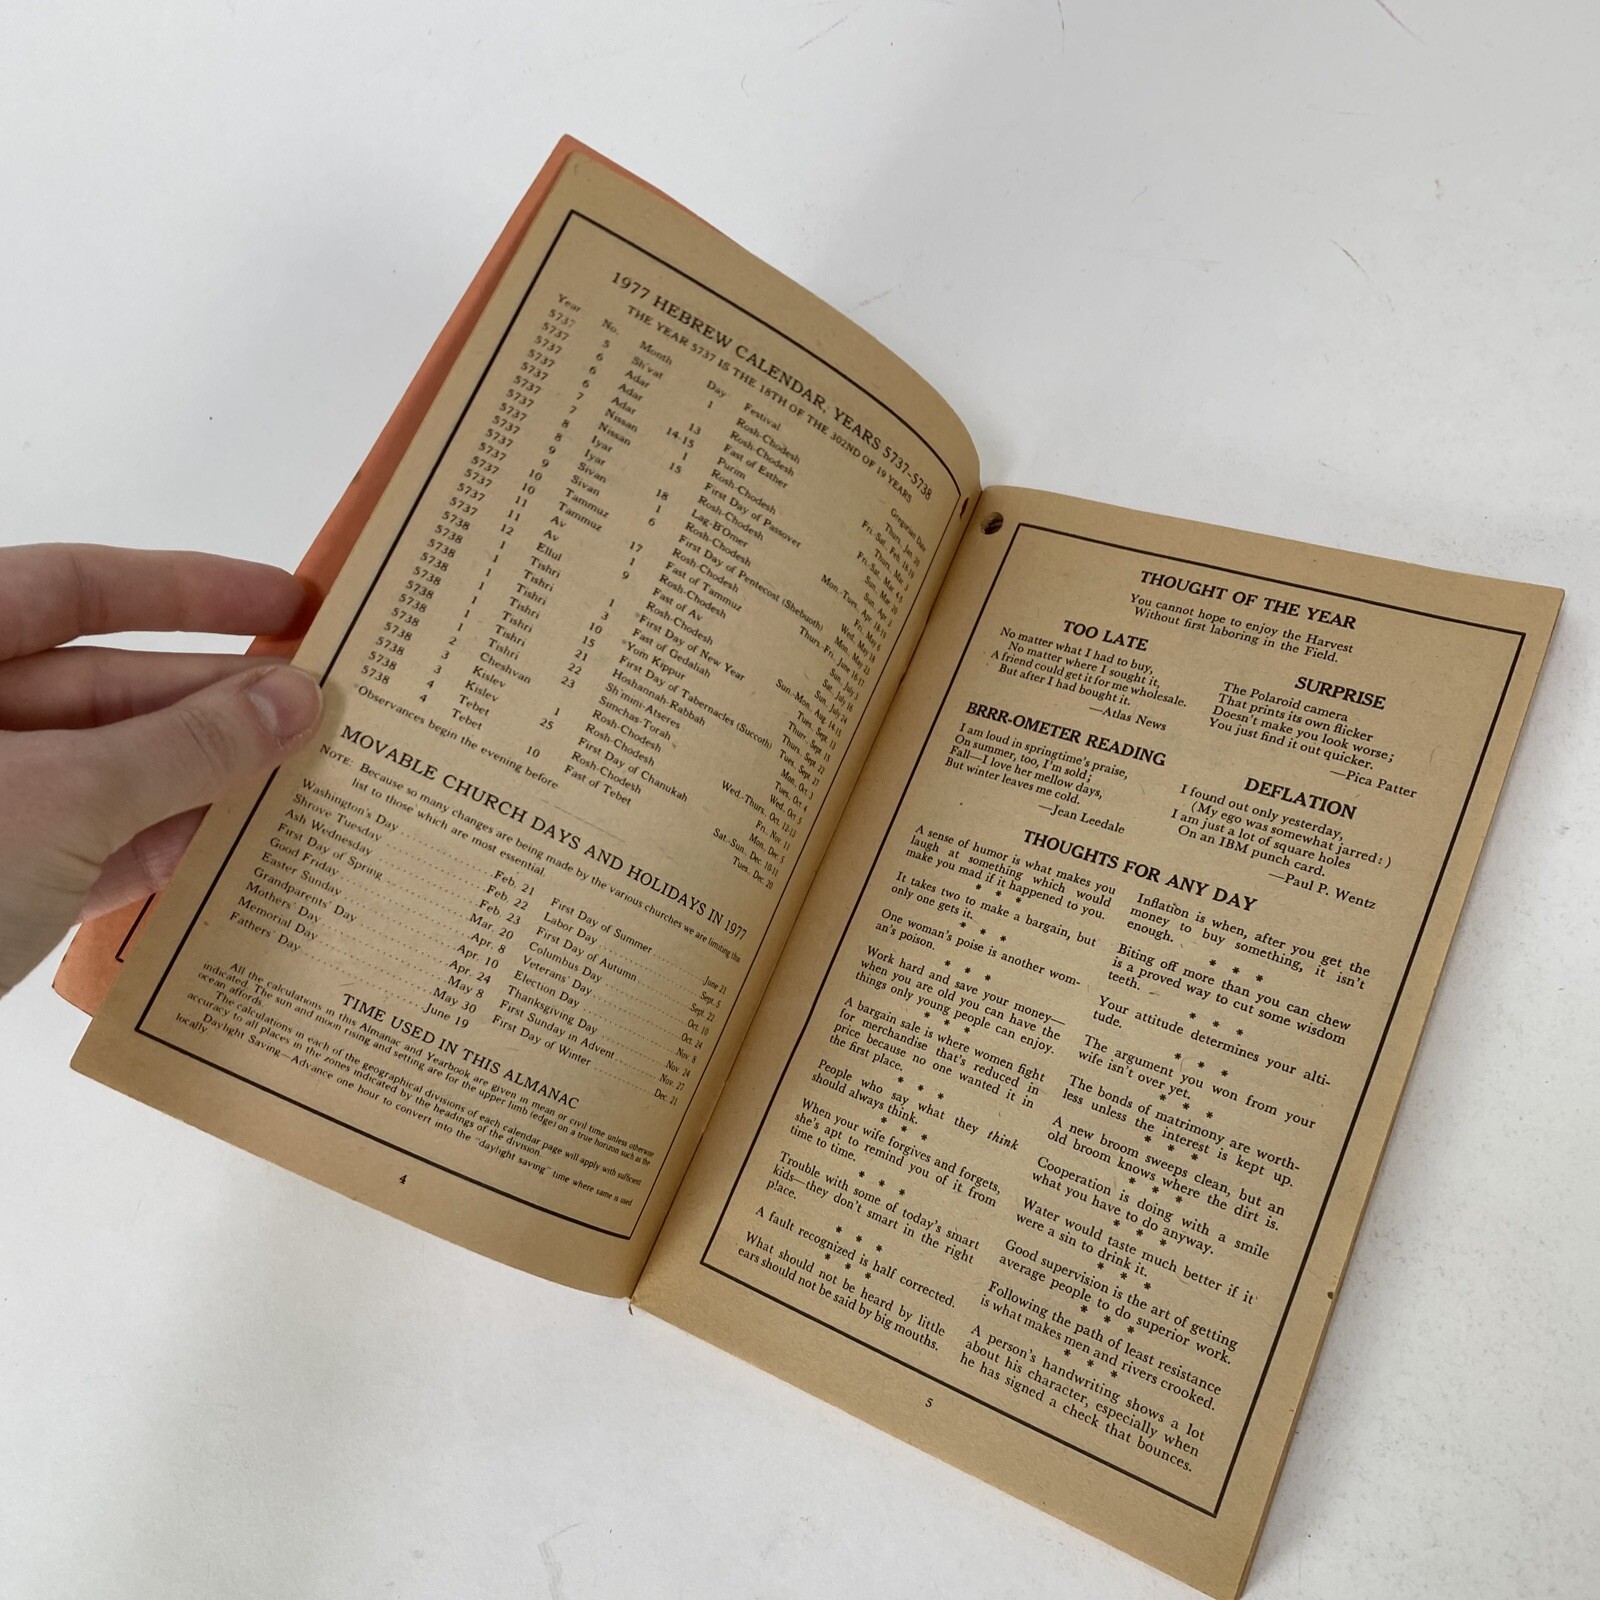 1977 HEBREW CALENDAR, YEARS 5737-5738
THE YEAR 5737 IS THE 18TH OF THE 302ND OF 19 YEARS
Year No. Month Day Festival Gregorian Date
5737 5 Sh'vat 1 Rosh-Chodesh Thurs., Jan. 20
5737 6 Adar Rosh-Chodesh Fri.-Sat., Feb. 18-19
5737 6 Adar 13 Fast of Esther Thurs., Mar. 3
5737 6 Adar 14-15 Purim Fri.-Sat., Mar. 4-5
5737 7 Nissan 1 Rosh-Chodesh Sun., Mar. 20
5737 7 Nissan 15 First Day of Passover Sun., Apr. 3
5737 8 Iyar Rosh-Chodesh Mon.-Tues., Apr. 18-19
5737 8 Iyar 18 Lag-B'Omer Fri., May 6
5737 9 Sivan 1 Rosh-Chodesh Wed., May 18
5737 9 Sivan 6 First Day of Pentecost (Shebuoth) Mon., May 23
5737 10 Tammuz Rosh-Chodesh Thurs.-Fri., June 16-17
5737 10 Tammuz 17 Fast of Tammuz Sun., July 3
5737 11 Av 1 Rosh-Chodesh Sat., July 16
5737 11 Av 9 Fast of Av Sun., July 24
5737 12 Ellul Rosh-Chodesh Sun.-Mon., Aug. 14-15
5738 1 Tishri 1 *First Day of New Year Tues., Sept. 13
5738 1 Tishri 3 Fast of Gedaliah Thurs., Sept. 15
5738 1 Tishri 10 *Yom Kippur Thurs., Sept. 22
5738 1 Tishri 15 First Day of Tabernacles (Succoth) Tues., Sept. 27
5738 1 Tishri 21 Hoshannah-Rabbah Mon., Oct. 3
5738 1 Tishri 22 Sh'mini-Atseres Tues., Oct. 4
5738 1 Tishri 23 Simchas-Torah Wed., Oct. 5
5738 2 Cheshvan Rosh-Chodesh Wed.-Thurs., Oct. 12-13
5738 3 Kislev 1 Rosh-Chodesh Fri., Nov. 11
5738 3 Kislev 25 First Day of Chanukah Mon., Dec. 5
5738 4 Tebet Rosh-Chodesh Sat.-Sun., Dec. 10-11
5738 4 Tebet 10 Fast of Tebet Tues., Dec. 20
*Observances begin the evening before
MOVABLE CHURCH DAYS AND HOLIDAYS IN 1977
NOTE: Because so many changes are being made by the various churches we are limiting this
list to those which are most essential.
Washington's Day Feb. 21
Shrove Tuesday Feb. 22
Ash Wednesday Feb. 23
First Day of Spring Mar. 20
Good Friday Apr. 8
Easter Sunday Apr. 10
Grandparents' Day Apr. 24
Mothers' Day May 8
Memorial Day May 30
Fathers' Day June 19
First Day of Summer June 21
Labor Day Sept. 5
First Day of Autumn Sept. 22
Columbus Day Oct. 10
Veterans' Day Oct. 24
Election Day Nov. 8
Thanksgiving Day Nov. 24
First Sunday in Advent Nov. 27
First Day of Winter Dec. 21
TIME USED IN THIS ALMANAC
All the calculations in this Almanac and Yearbook are given in mean or civil time unless otherwise
indicated. The sun and moon rising and setting are for the upper limb (edge) on a true horizon such as the
ocean affords.
The calculations in each of the geographical divisions of each calendar page will apply with sufficient
accuracy to all places in the zones indicated by the headings of the division."
Daylight Saving—Advance one hour to convert into the "daylight saving" time where same is used
locally.
4
THOUGHT OF THE YEAR
You cannot hope to enjoy the Harvest
Without first laboring in the Field.
TOO LATE
No matter what I had to buy,
No matter where I sought it,
A friend could get it for me wholesale.
But after I had bought it.
—Atlas News
BRRR-OMETER READING
I am loud in springtime's praise,
On summer, too, I'm sold;
Fall—I love her mellow days,
But winter leaves me cold.
—Jean Leedale
SURPRISE
The Polaroid camera
That prints its own flicker
Doesn't make you look worse;
You just find it out quicker.
—Pica Patter
DEFLATION
I found out only yesterday,
(My ego was somewhat jarred:)
I am just a lot of square holes
On an IBM punch card.
—Paul P. Wentz
THOUGHTS FOR ANY DAY
A sense of humor is what makes you
laugh at something which would
make you mad if it happened to you.
* * *
It takes two to make a bargain, but
only one gets it.
* * *
One woman's poise is another wom-
an's poison.
* * *
Work hard and save your money—
when you are old you can have the
things only young people can enjoy.
* * *
A bargain sale is where women fight
for merchandise that's reduced in
price because no one wanted it in
the first place.
* * *
People who say what they think
should always think.
* * *
When your wife forgives and forgets,
she's apt to remind you of it from
time to time.
* * *
Trouble with some of today's smart
kids—they don't smart in the right
place.
* * *
A fault recognized is half corrected.
* * *
What should not be heard by little
ears should not be said by big mouths.
Inflation is when, after you get the
money to buy something, it isn't
enough.
* * *
Biting off more than you can chew
is a proved way to cut some wisdom
teeth.
* * *
Your attitude determines your alti-
tude.
* * *
The argument you won from your
wife isn't over yet.
* * *
The bonds of matrimony are worth-
less unless the interest is kept up.
* * *
A new broom sweeps clean, but an
old broom knows where the dirt is.
* * *
Cooperation is doing with a smile
what you have to do anyway.
* * *
Water would taste much better if it
were a sin to drink it.
* * *
Good supervision is the art of getting
average people to do superior work.
* * *
Following the path of least resistance
is what makes men and rivers crooked.
* * *
A person's handwriting shows a lot
about his character, especially when
he has signed a check that bounces.
5